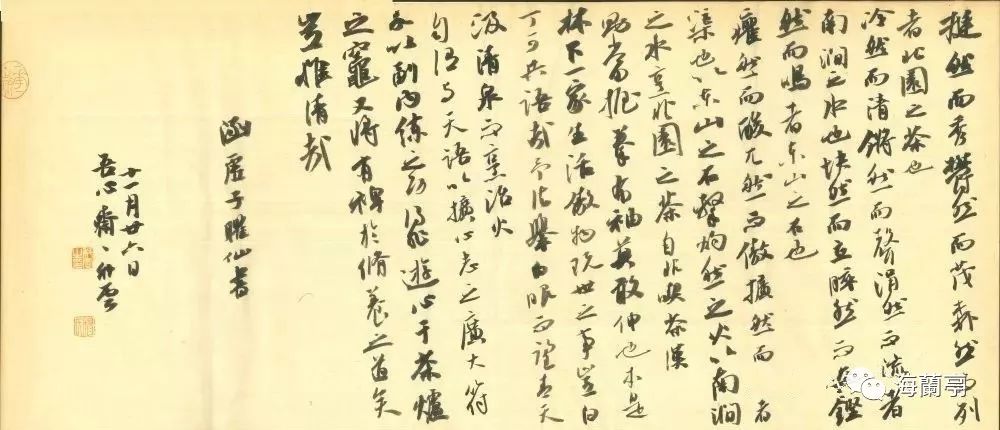 挺然而秀欝然而茂森然而列
者北園之茶也
冷然而清鏘然而聲涓然而流者
南澗之水也塊然而立晬然而温鏗
然而鳴者東山之石也
癯然而酸兀然而傲擴然而 者
渠也以東山之石擊灼然之火以南澗
之水烹北園之茶自非喫茶漢
則當握拳布袖莫敢伸也本是
林下一家生活傲物玩世之事豈白
丁可共語哉予法舉白眼而望青天
汲清泉而烹活火
自謂与天語以擴心志之廣大符
水以副內練之功得非遊心于茶爐
之竈又將有裨於脩養之道矣
豈惟清哉
涵虛子臞仙書
十一月廿六日
吾心齋
海蘭亭